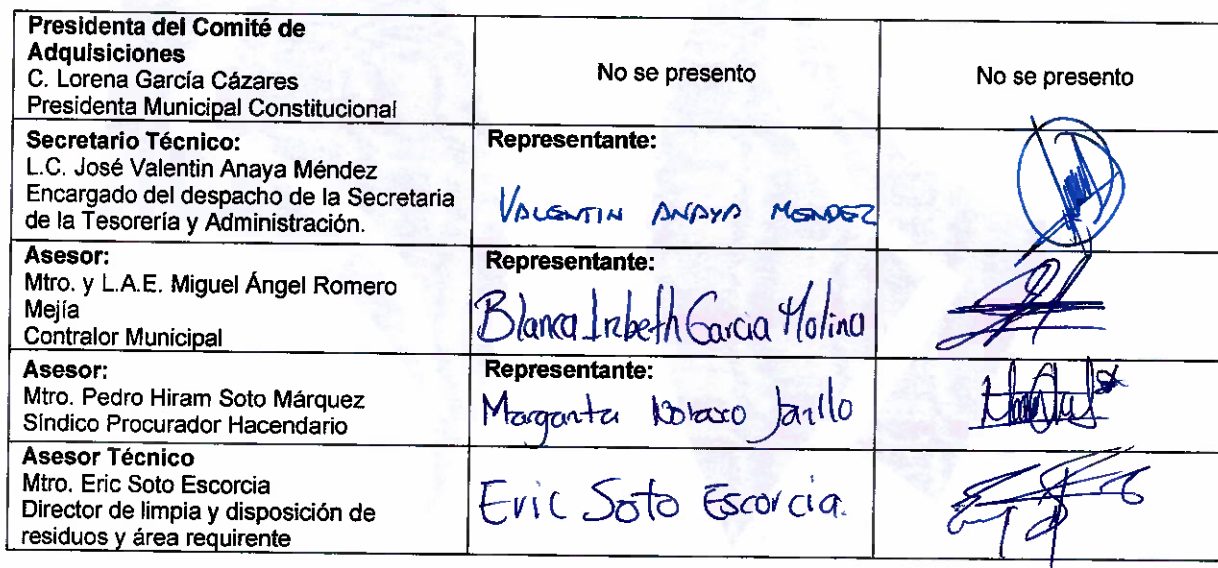 Presidenta del Comité de
Adquisiciones
C. Lorena García Cázares
Presidenta Municipal Constitucional
No se presento
No se presento
Secretario Técnico:
L.C. José Valentin Anaya Méndez
Encargado del despacho de la Secretaria
de la Tesorería y Administración.
Representante:
VALENTIN ANAYA MENDEZ
Asesor:
Mtro. y L.A.E. Miguel Ángel Romero
Mejía
Contralor Municipal
Representante:
Blanca Irzbeth Garcia Molina
Asesor:
Mtro. Pedro Hiram Soto Márquez
Síndico Procurador Hacendario
Representante:
Margarita Jarillo
Asesor Técnico
Mtro. Eric Soto Escorcia
Director de limpia y disposición de
residuos y área requirente
Eric Soto Escorcia.